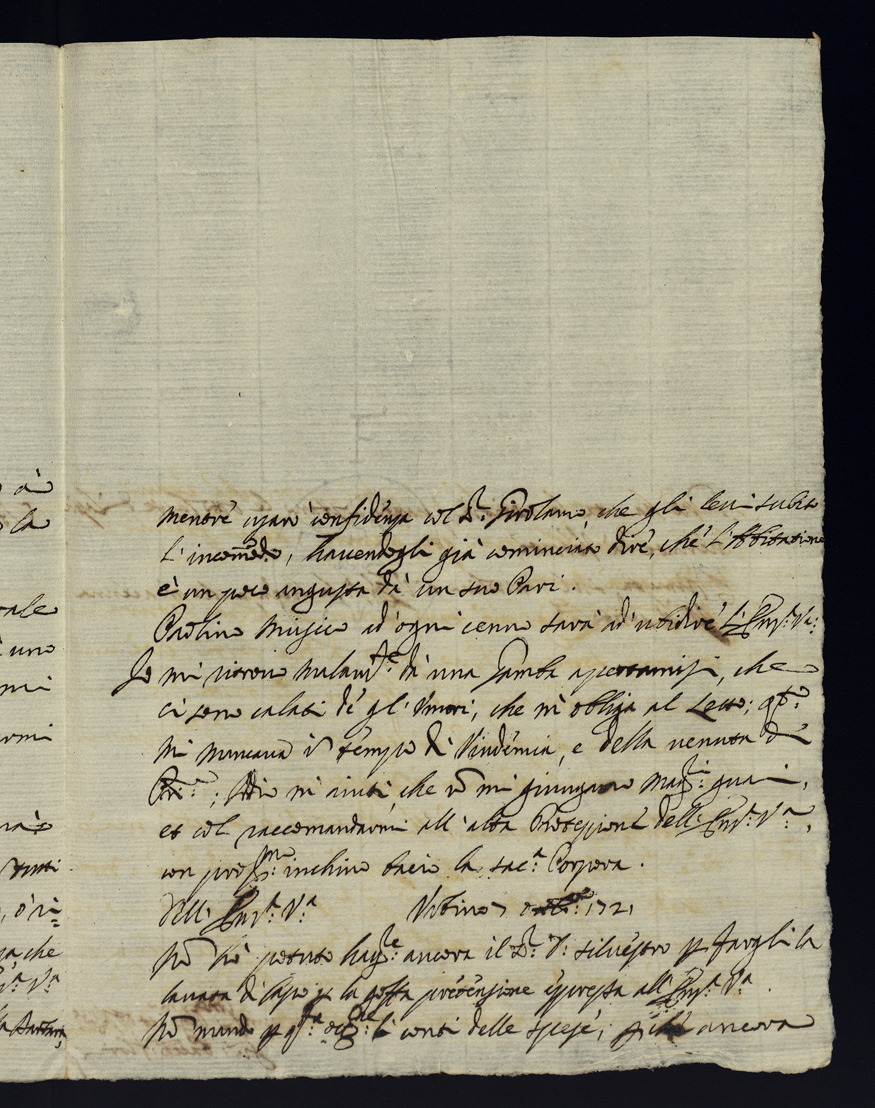 mentre usarà confidenza col S.r Girolamo, che gli levi subito
l'incommodo, havendogli già cominciato dire, che l'Abbitatione
è un poco angusta da un suo Pari.
Paolino Musico ad ogni cenno sarà ad ubidire l'Em.a V.a
Io mi ritrovo malam.te da una Gamba apertamisi, che
ci sono calati de gl'Umori, che m'obliga al Letto; q.to
mi mancava in tempo di Vindemia, e della venuta di
; Iddio m'aiuti, che non mi giungano mag.ri guai,
et col raccomandarmi all'alta Protezione dell'Em.a V.a,
con prof.mo inchino bacio la sac.a Porpora.
Dell'Em.a V.a Urbino 7 1721
Non hò potuto hav.e ancora il S.r D. Silvestro p fargli la
lavata di capo p la goffa pretenzione espressa all'Em.a V.a
Non mando p q.ta li conti delle spese; ancora
o à
la
rale
uno
mi
tutti
che
V.a